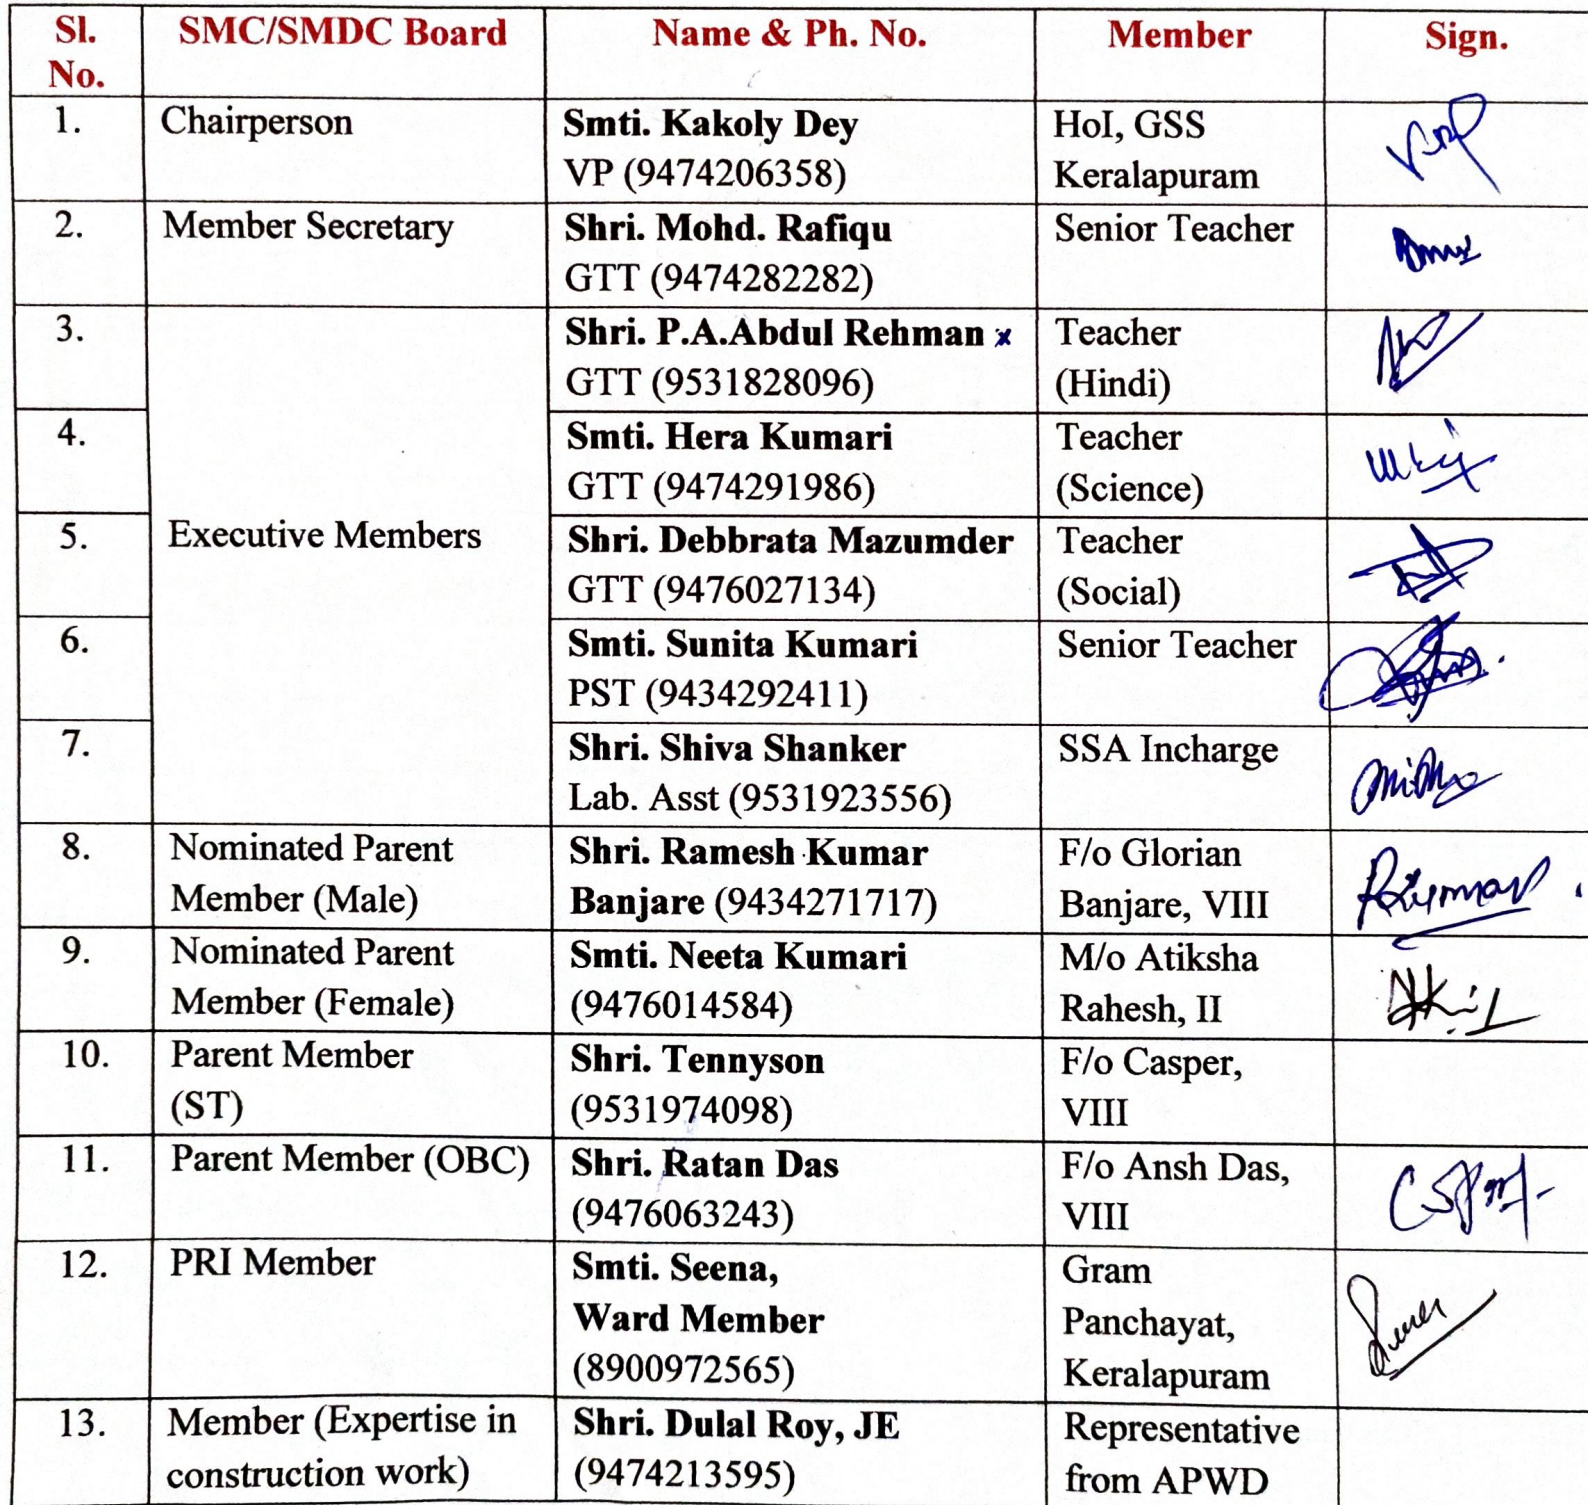 Sl. No.
SMC/SMDC Board
Name & Ph. No.
Member
Sign.
1.
Chairperson
Smti. Kakoly Dey
VP (9474206358)
HoI, GSS
Keralapuram
2.
Member Secretary
Shri. Mohd. Rafiqu
GTT (9474282282)
Senior Teacher
3.
Executive Members
Shri. P.A.Abdul Rehman x
GTT (9531828096)
Teacher
(Hindi)
4.
Smti. Hera Kumari
GTT (9474291986)
Teacher
(Science)
5.
Shri. Debbrata Mazumder
GTT (9476027134)
Teacher
(Social)
6.
Smti. Sunita Kumari
PST (9434292411)
Senior Teacher
7.
Shri. Shiva Shanker
Lab. Asst (9531923556)
SSA Incharge
8.
Nominated Parent
Member (Male)
Shri. Ramesh Kumar
Banjare (9434271717)
F/o Glorian
Banjare, VIII
RKumar
9.
Nominated Parent
Member (Female)
Smti. Neeta Kumari
(9476014584)
M/o Atiksha
Rahesh, II
10.
Parent Member
(ST)
Shri. Tennyson
(9531974098)
F/o Casper,
VIII
11.
Parent Member (OBC)
Shri. Ratan Das
(9476063243)
F/o Ansh Das,
VIII
12.
PRI Member
Smti. Seena,
Ward Member
(8900972565)
Gram
Panchayat,
Keralapuram
13.
Member (Expertise in
construction work)
Shri. Dulal Roy, JE
(9474213595)
Representative
from APWD